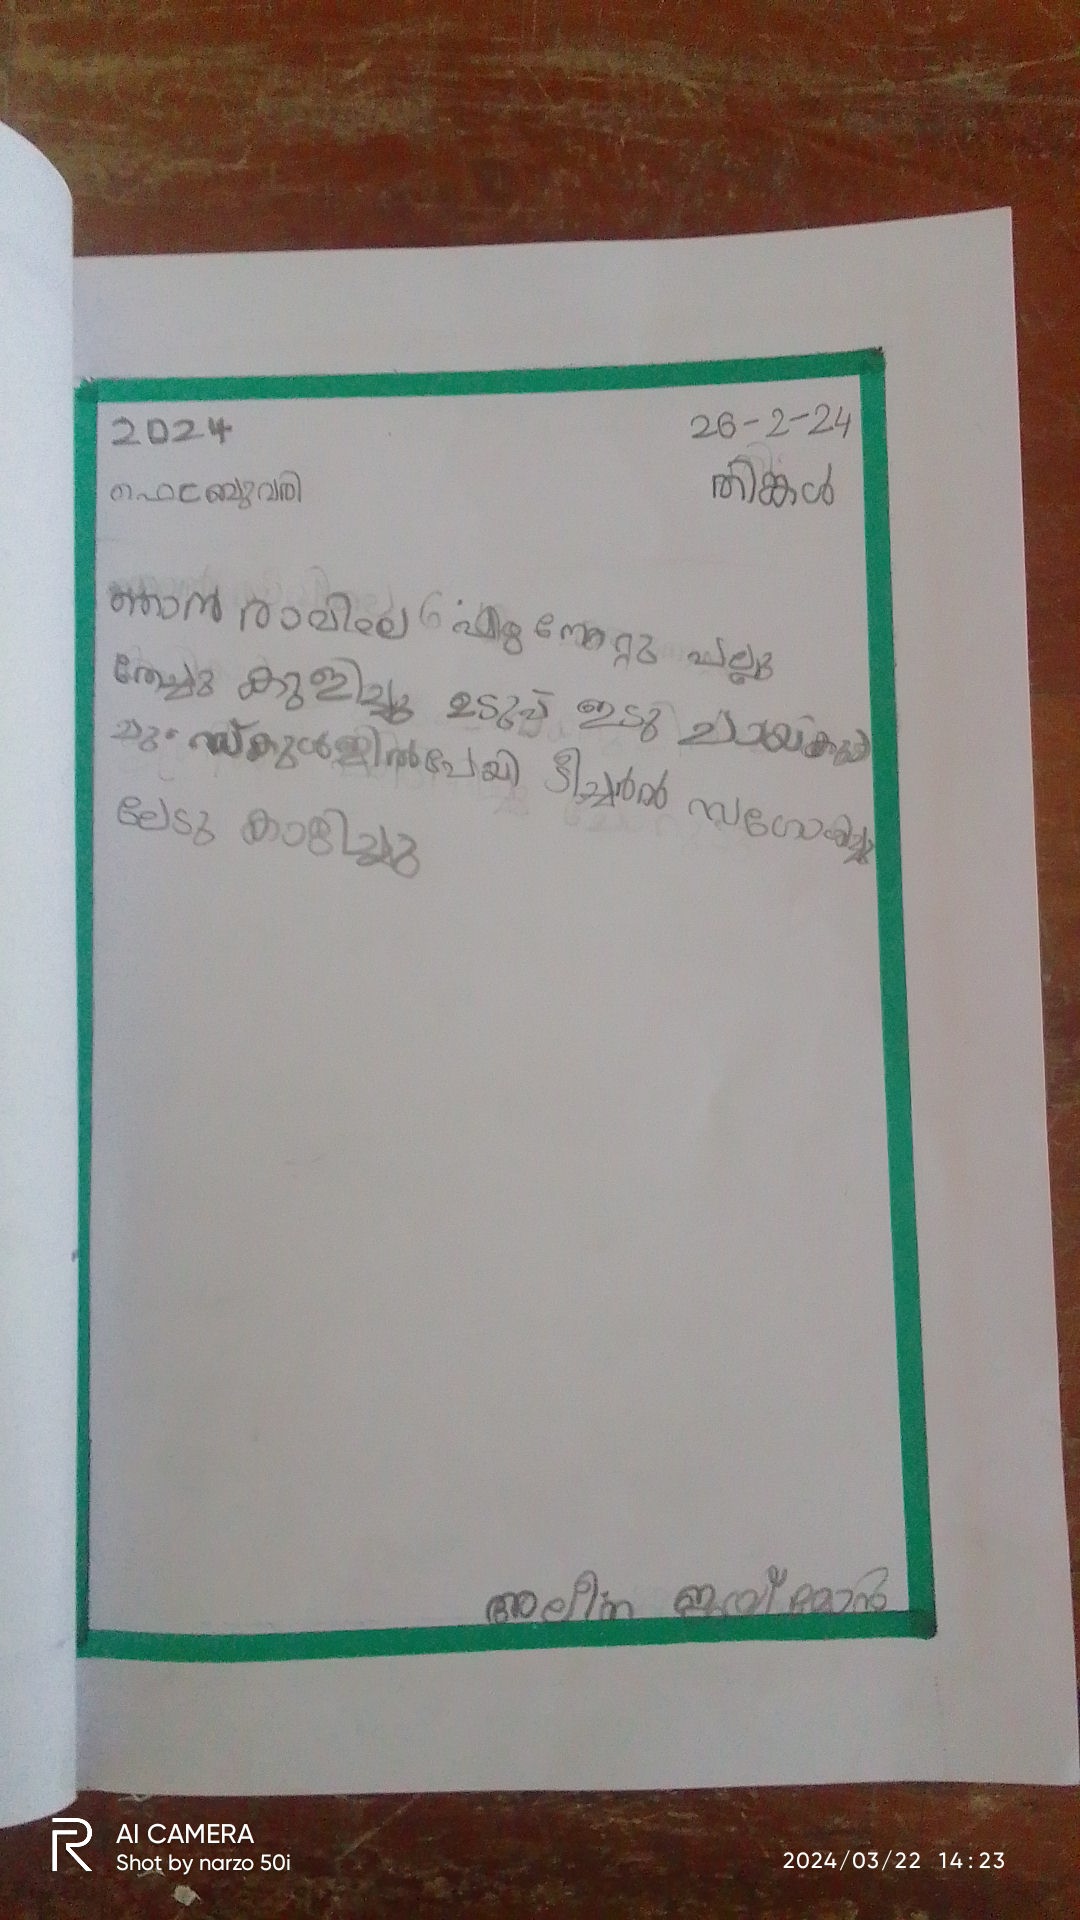 2024 26-2-24
ഫെബ്രുവരി തിങ്കൾ
ഞാൻ രാവിലെ 6 നേറ്റു പല്ലു
തേച്ചു കുളിച്ചു ഉടുപ്പ് ഇടു ചായകുടി
ചു. സ്കുൾളിൽപേയി ടീച്ചർൽ
ലേടു കാളിച്ചു
അലീന ജയ്മോൻ
AI CAMERA
Shot by narzo 50i 2024/03/22 14:23